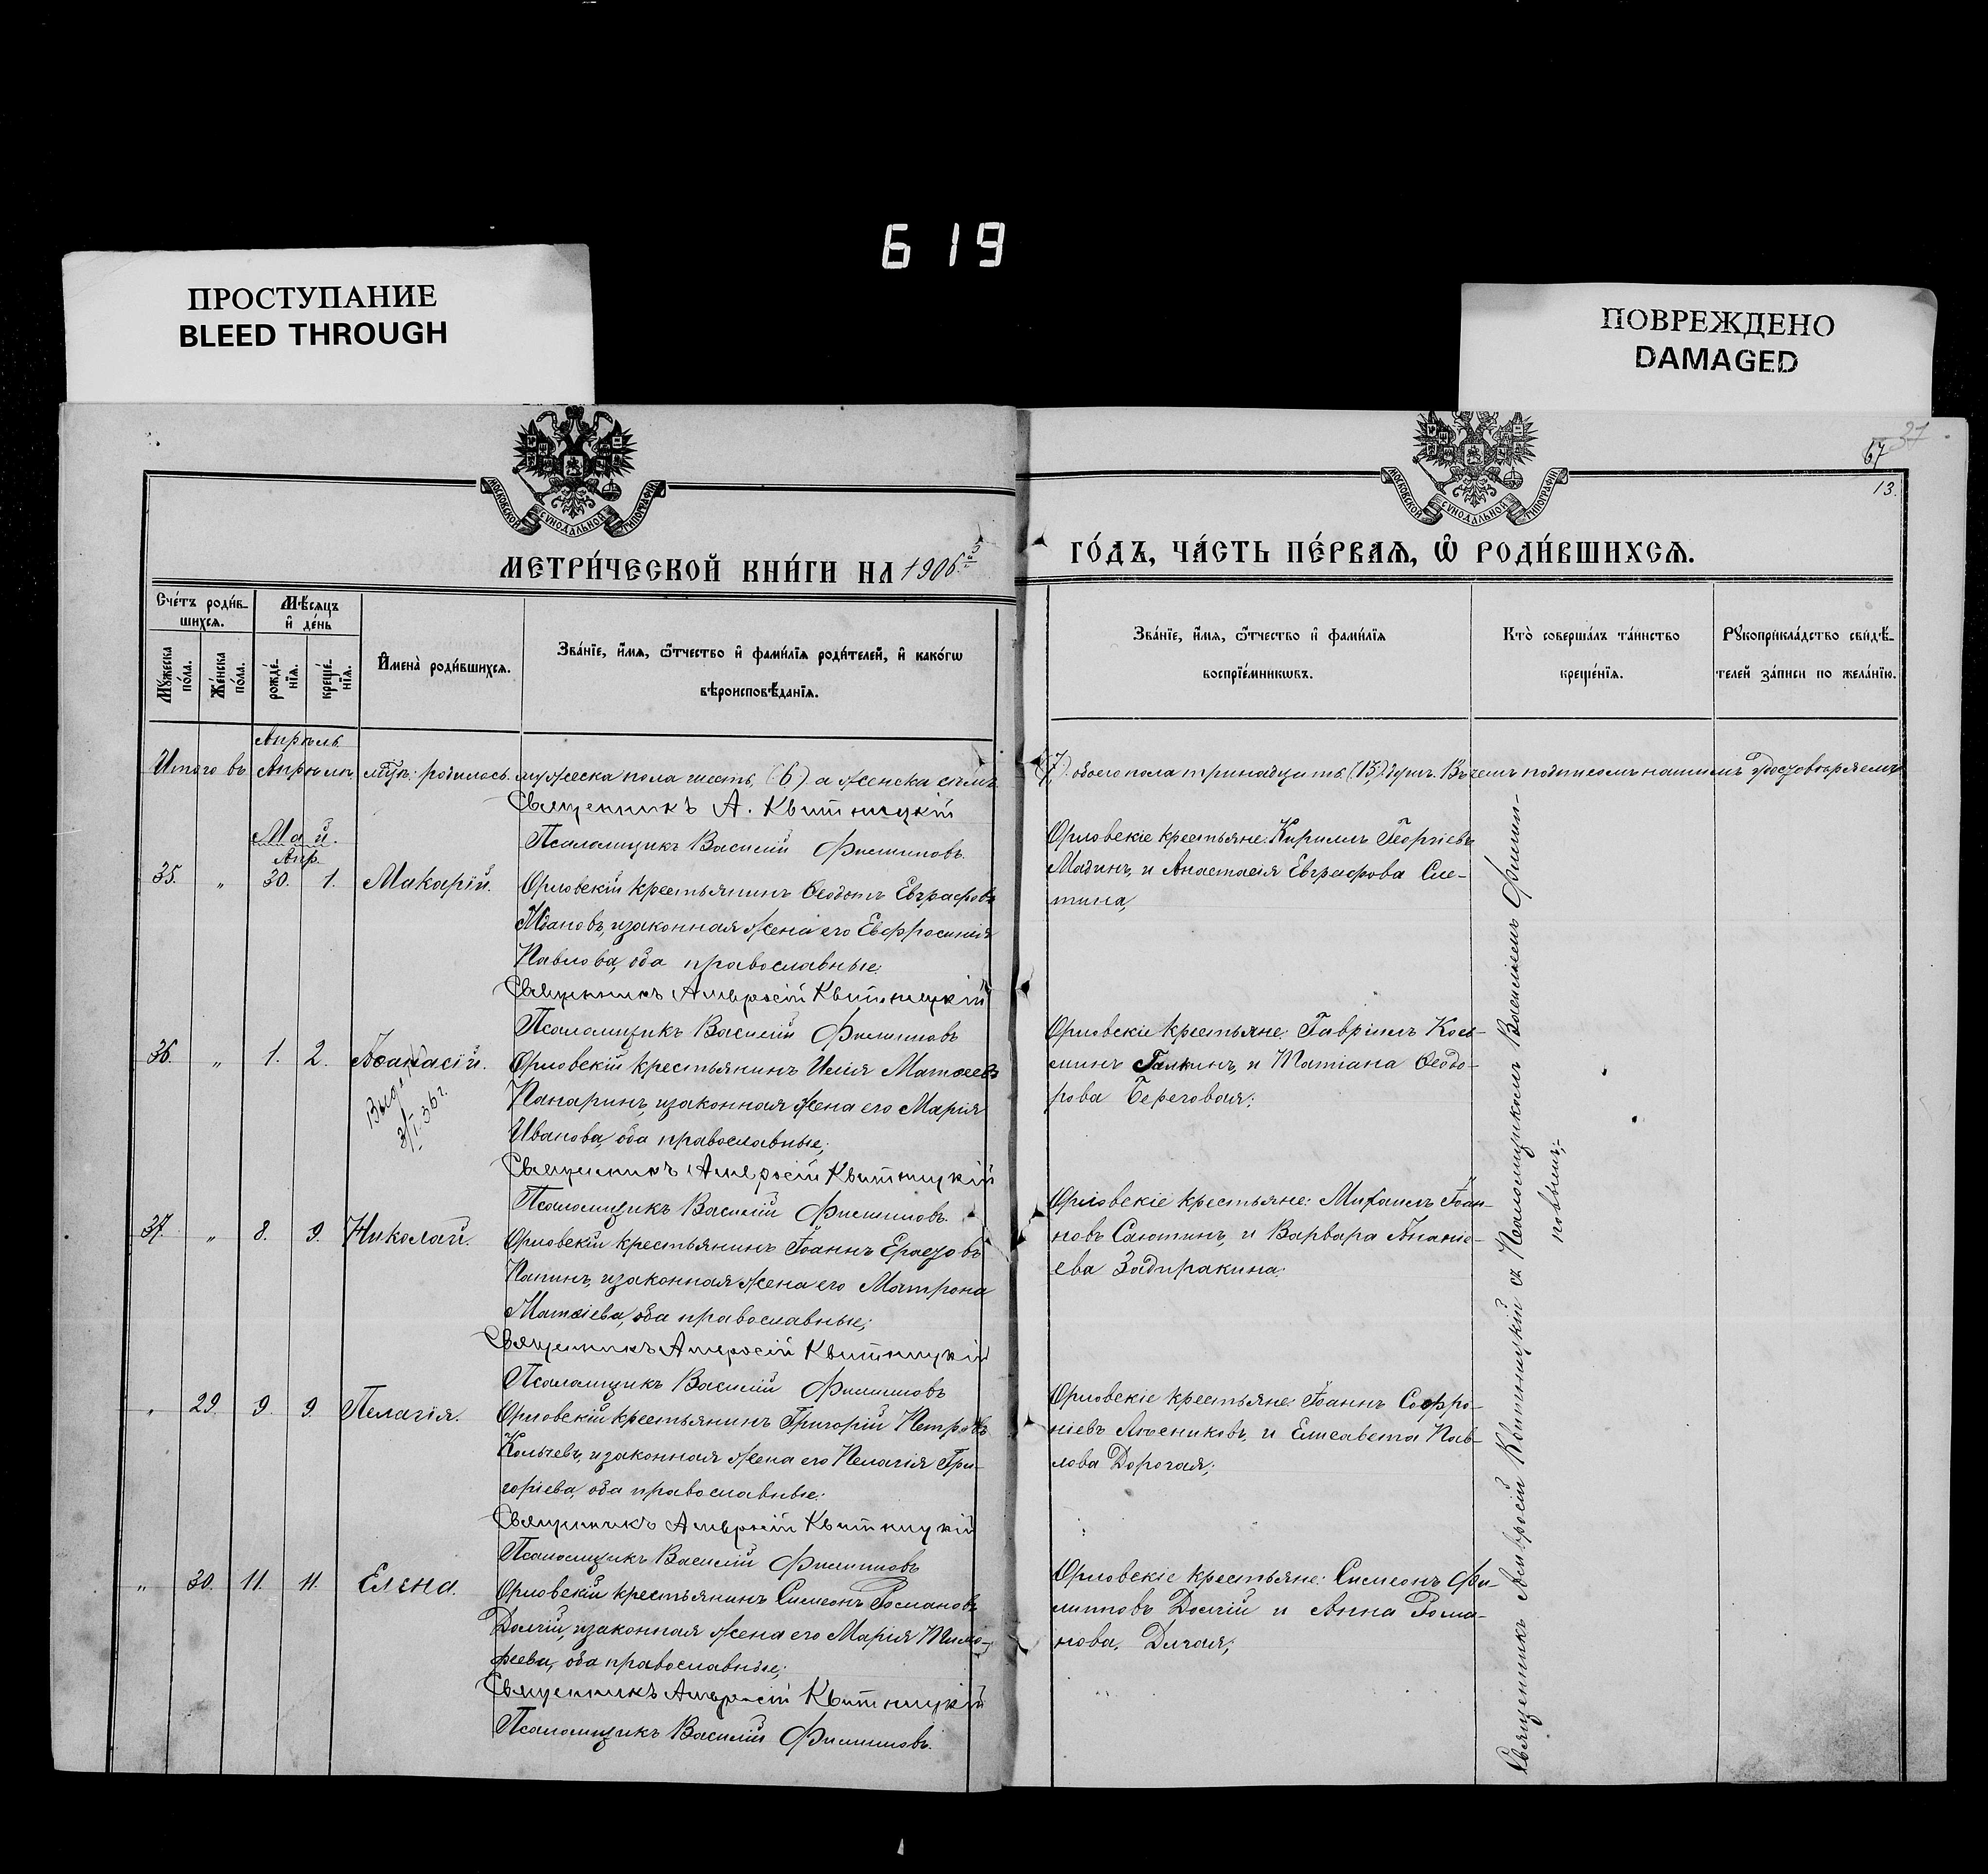 619
ПРОСТУПАНИЕ
BLEED THROUGH
ПОВРЕЖДЕНО
DAMAGED
37
67
13.
МОСКОВСКОЙ СѴНОДАЛЬНОЙ ТИПОГРАФІИ
МОСКОВСКОЙ СѴНОДАЛЬНОЙ ТИПОГРАФІИ
МЕТРИ́ЧЕСКОЙ КНИ́ГИ НА 1906й
ГО́ДЪ, ЧА́СТЬ ПЕ́РВАѦ, Ѽ РОДИ́ВШИХСѦ.
Сче́тъ роди́в-
шихсѧ.
Мѣ́сѧцъ
и҆ де́нь
Мꙋ́жеска по́ла.
Же́нска по́ла.
рожде́-нїѧ.
креще́-нїѧ.
И҆мена̀ роди́вшихсѧ.
Зва́нїе, и҆́мѧ, ѻ҆́тчество и҆ фами́лїѧ роди́телей, и҆ како́гѡ
вѣроисповѣ́данїѧ.
Зва́нїе, и҆́мѧ, ѻ҆́тчество и҆ фами́лїѧ
воспрїе́мникѡвъ.
Кто̀ соверша́лъ та́инство
креще́нїѧ.
Рꙋкоприкла́дство свидѣ́-
телей за́писи по жела́нїю.
Апрѣль
Итого въ Апрѣлѣ мѣц. родилось мужеска пола шесть, (6) а женска семь (7) обоего пола тринадцать (13) душъ. Въ чемъ подписомъ нашимъ удостовѣряемъ
Священникъ А. Квитницкій
Псаломщикъ Василій Филипповъ.
Май.
Апр.
35. " 30. 1. Макарій.
Орловскій крестьянинъ Ѳеодотъ Евграфовъ
Ждановъ, и законная жена его Евфросинія
Павлова, оба православные;
Священникъ Амвросій Квитницкій
Псаломщикъ Василій Филипповъ
Орловскіе крестьяне: Кириллъ Георгіевъ
Мадинъ, и Анастасія Евграфова Сле-
тина,
36. " 1. 2. Аѳанасій.
3/I 36 г.
Орловскій крестьянинъ Илія Матѳеевъ
Панаринъ, и законная жена его Марія
Иванова, оба православные;
Священникъ Амвросій Квитницкій
Псаломщикъ Василій Филипповъ.
Орловскіе крестьяне: Гавріилъ Кось-
минъ Галкинъ, и Татіана Ѳеодо-
рова Береговая;
37. " 8. 9. Николай.
Орловскій крестьянинъ Іоаннъ Ерастовъ
Папинъ, и законная жена его Матрона
Матѳіева, оба православные;
Священникъ Амвросій Квитницкій
Псаломщикъ Василій Филипповъ
Орловскіе крестьяне: Михаилъ Іоан-
новъ Саютинъ, и Варвара Ананіе-
ева Задиракина;
" 29. 9. 9. Пелагія.
Орловскій крестьянинъ Григорій Петровъ
Колычевъ, и законная жена его Пелагія Гри-
горіева, оба православные;
Священникъ Амвросій Квитницкій
Псаломщикъ Василій Филипповъ
Орловскіе крестьяне: Іоаннъ Софро-
ніевъ Лесниковъ, и Елисавета Пав-
лова Дорогая;
" 30. 11. 11. Елена.
Орловскій крестьянинъ Симеонъ Романовъ
Долгій, и законная жена его Марія Тимо-
феева, оба православные;
Священникъ Амвросій Квитницкій
Псаломщикъ Василій Филипповъ.
Орловскіе крестьяне: Симеонъ Фи-
липповъ Долгій и Анна Рома-
нова Дикая;
Священникъ Амвросій Квитницкій съ Псаломщикомъ Василіемъ Филип-
повымъ;